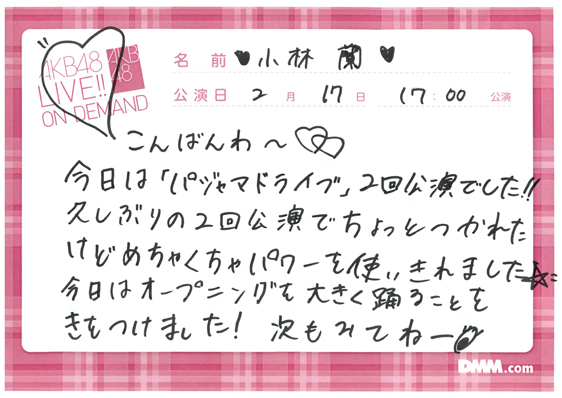 AKB48
LIVE!!
ON DEMAND
AKB
48
名前 ♥小林 蘭♥
公演日 2月 17日 17:00 公演
こんばんわ〜
今日は「パジャマドライブ」2回公演でした!!
久しぶりの2回公演でちょっとつかれた
けどめちゃくちゃパワーを使いきれました☆
今日はオープニングを大きく踊ることを
きをつけました! 次もみてねー♪
DMM.com